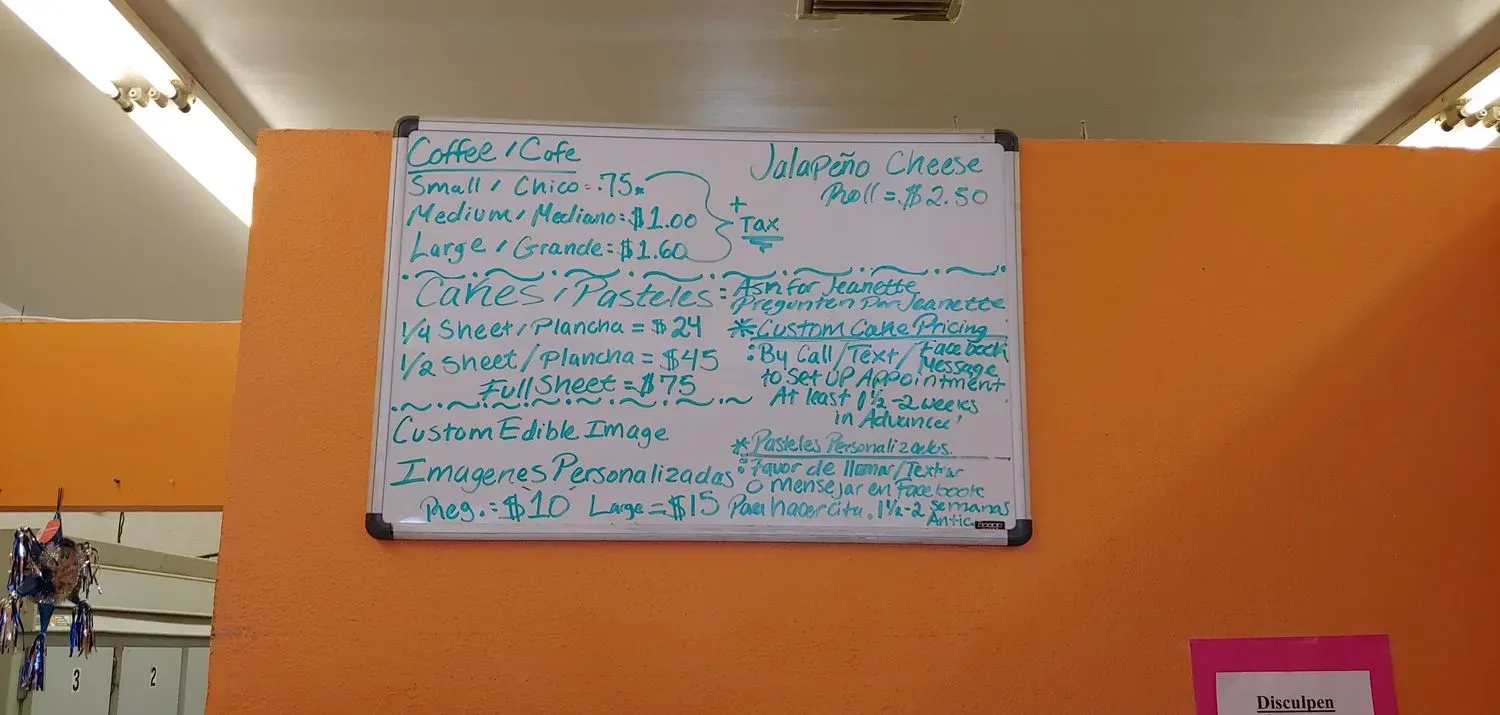 Coffee / Cafe
Small / Chico = .75
Medium / Mediano = $1.00
Large / Grande = $1.60
+
Tax
Jalapeño Cheese
Roll = $2.50
Cakes / Pasteles :
Ask for Jeanette
Pregunten Por Jeanette
1/4 Sheet / Plancha = $24
1/2 Sheet / Plancha = $45
Full Sheet = $75
* Custom Cake Pricing
: By Call / Text / Facebook
Message
to Set UP Appointment
At least 1½-2 weeks
in Advance!
Custom Edible Image
Imagenes Personalizadas
Reg. = $10 Large = $15
* Pasteles Personalizados
: Favor de llamar / Textar
O mensejar en Facebook
Para hacer cita. 1½-2 semanas
Antic.
3
2
Disculpen